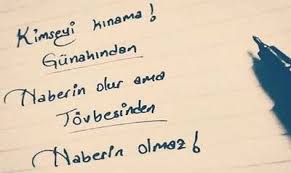 Kimseyi kınama!
Günahından
Haberin olur ama
Tövbesinden
Haberin olmaz!